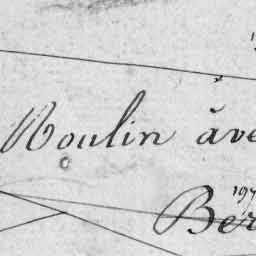 Moulin ave
197
Ber